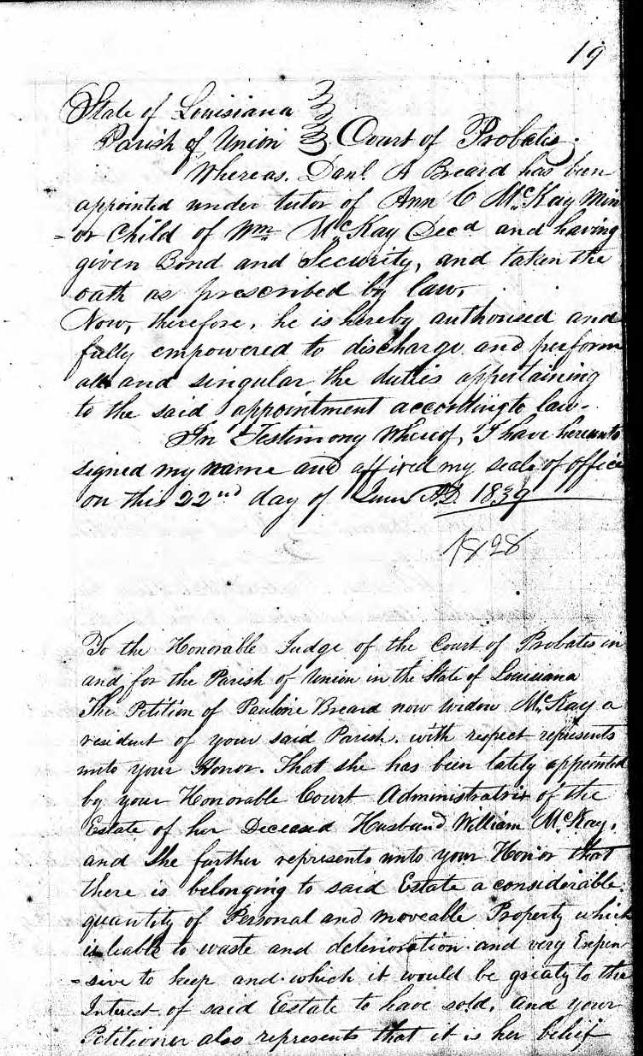 19
State of Louisiana
Parish of Union Court of Probates.
Whereas, Danl A Breard has been
appointed under tutor of Ann C McKay Min
-or Child of Wm McKay Decd and having
given Bond and Security, and taken the
oath as prescribed by law,
Now, therefore, he is hereby authorised and
fully empowered to discharge and perform
all and singular the duties appertaining
to the said appointment according to law.
In Testimony Whereof, I have hereunto
signed my name and affixed my seale of office
on this 22nd day of June AD. 1839
1828
To the Honorable Judge of the Court of Probates in
and for the Parish of Union in the State of Louisiana
The Petition of Pauline Breard now widow McKay a
resident of your said Parish. with respect represents
unto your Honor. That she has been lately appointed
by your Honorable Court Administratrix of the
Estate of her Deceased Husband William McKay.
and she further represents unto your Honor that
there is belonging to said Estate a considerable
quantity of Personal and moveable Property which
is liable to waste and deterioration and very Expen
-sive to keep and which it would be greaty to the
Interest of said Estate to have sold, and your
Petitioner also represents that it is her belief